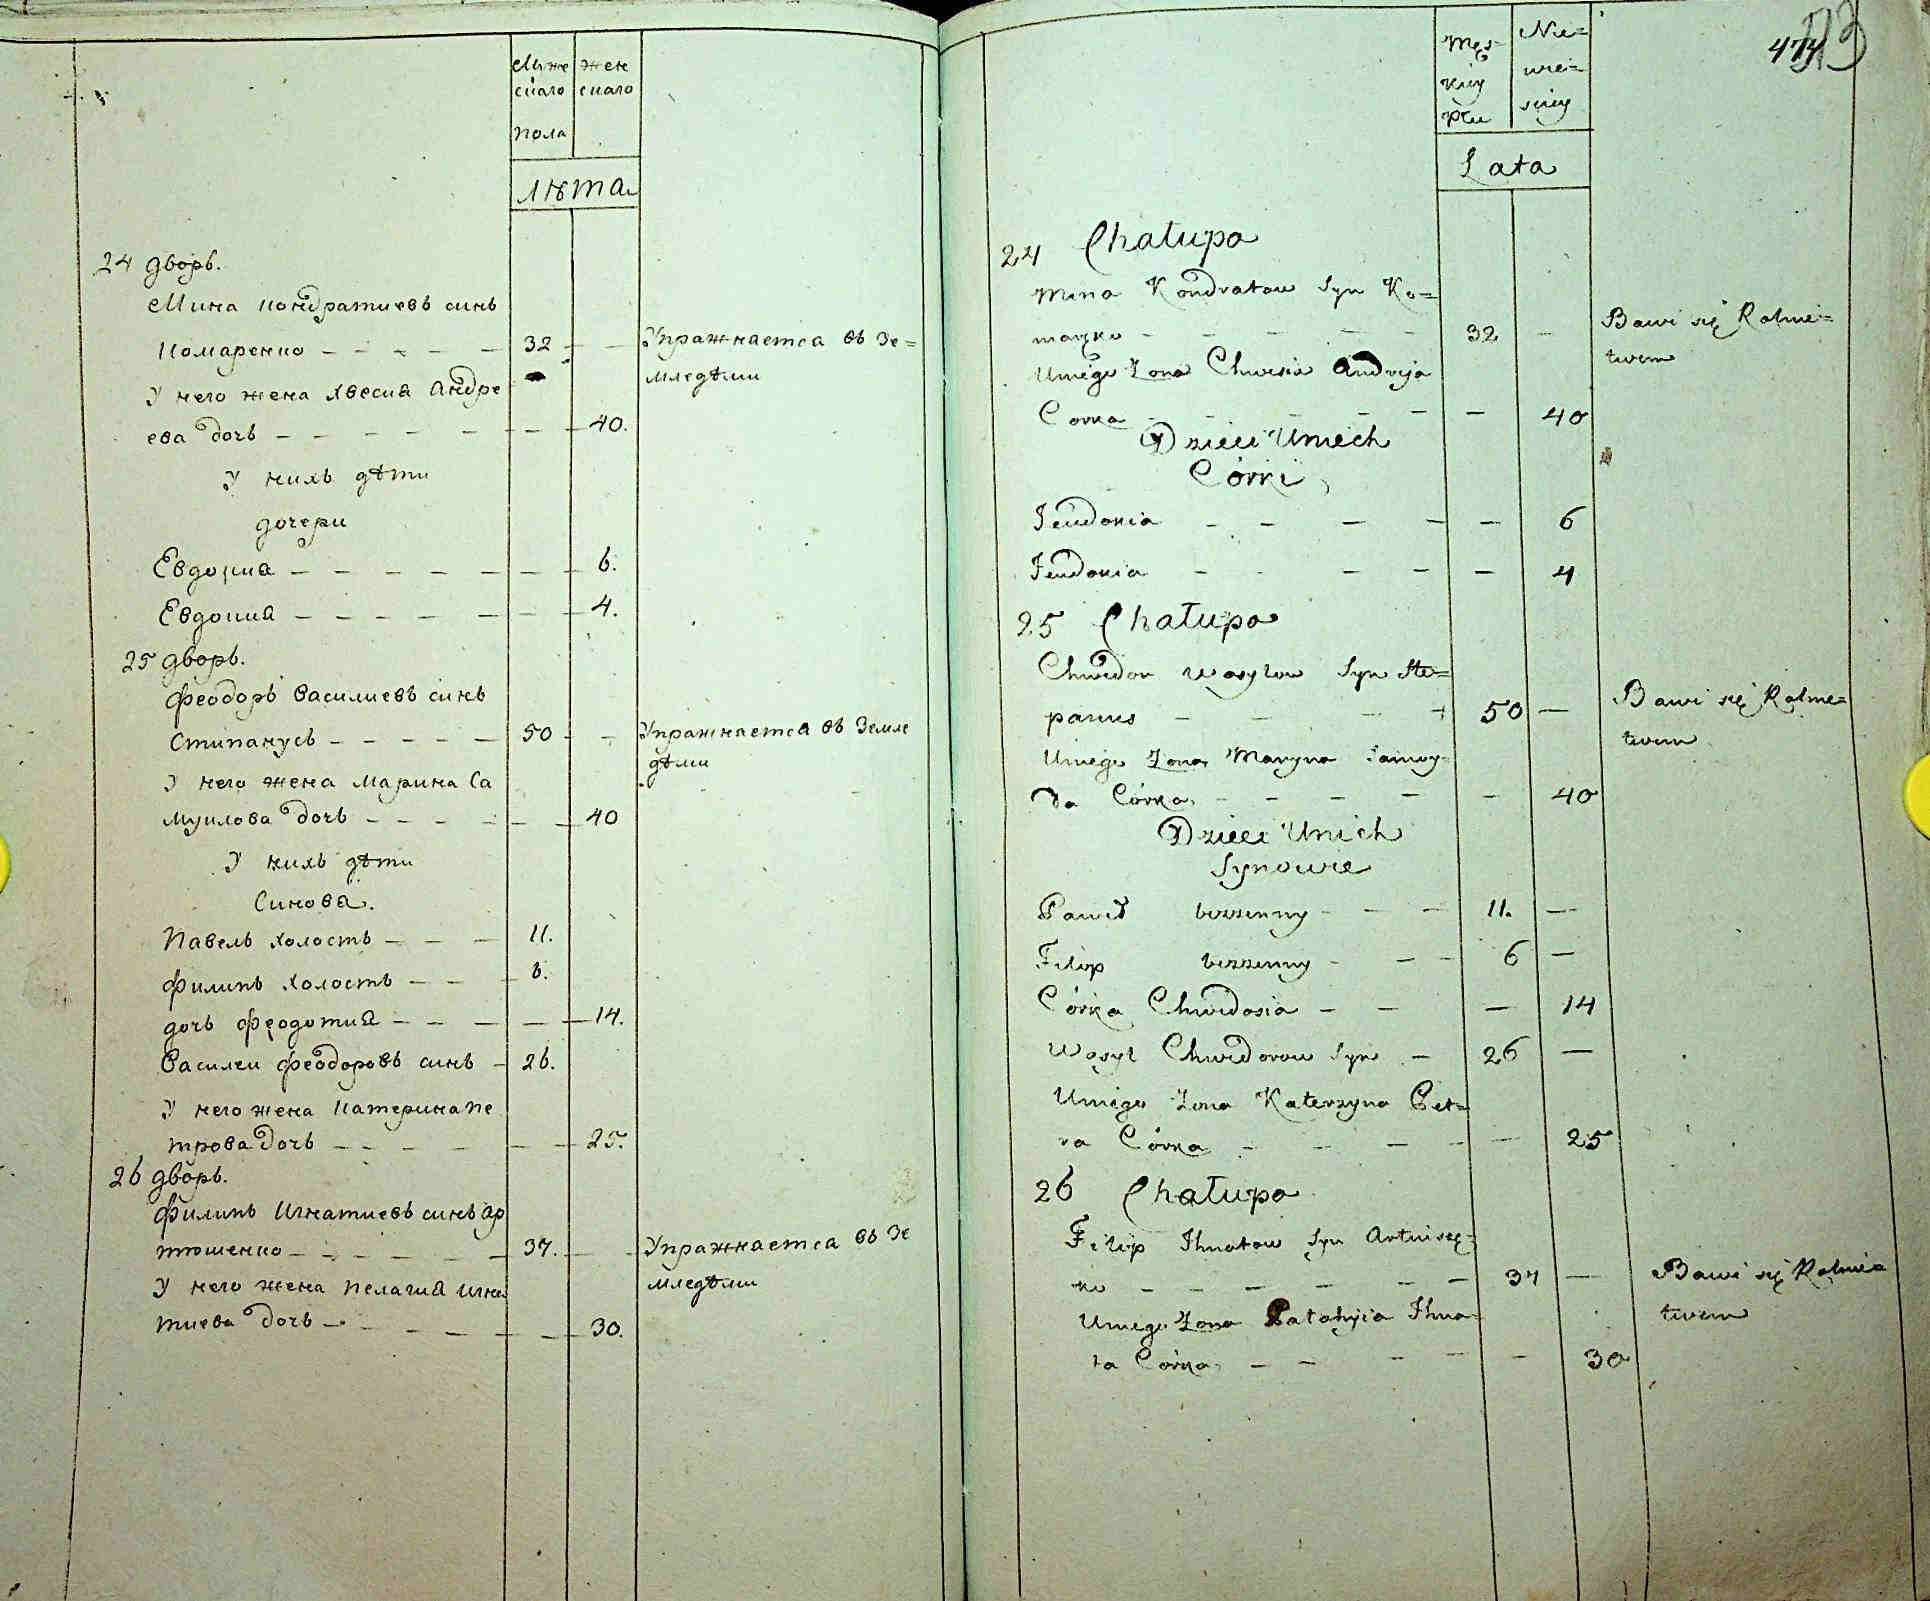 Муже
скаго
пола
жен
скаго
лѣта
24 дворь.
Мина кондратиевъ синь
комаренко — — — — — 32 — — Упражнается въ Зе=
мледѣли
У него жена Хвесиа Андре
ева дочь — — — — — — — 40.
У нихъ дѣти
дочери
Евдокиа — — — — — — — 6.
Евдокиа — — — — — — — 4.
25 дворь.
Феодоръ Василиевъ синь
Стипанусь — — — — — 50 — — Упражнается въ Земле
дѣли
У него жена Марина Са
муилова дочь — — — — — — 40
У нихъ дѣти
Синова.
Павель холость — — — 11.
Филипь холость — — — 6.
дочь Феодотиа — — — — 14.
Василеи Феодоровъ синь — 26.
У него жена Катерина пе
трова дочь — — — — — — 25.
26 дворь.
Филипь Игнатиевъ синь Ар
тюшенко — — — — — — 37. — — Упражнается въ Зе
мледѣли
У него жена пелагиа игна
тиева дочь — — — — — — 30.
474
513
Męs=
kiey
Płci
Nie=
wie=
sciey
Lata
24 Chałupa
Mina Kondratow Syn Ko=
marzko — — — — — 32 — Bawi się Rolni=
twem
Uniego Zona Chwesia Andreja
Corka — — — — — — 40
Dzieci Uniech
Córki
Jeudokia — — — — — 6
Jeudokia — — — — — 4
25 Chałupa
Chwedor Wasylow Syn Ste=
panus — — — — 50 — Bawi się Rolni=
twem
Uniego Zona Maryna Samoy=
ła Córka — — — — — 40
Dzieci Unich
Synowie
Paweł bezzenny — — — 11. —
Filip bezzenny — — — 6 —
Córka Chwedosia — — — 14
Wasyl Chwedorow Syn — 26 —
Uniego Zona Katerzyna Pet=
ra Córka — — — — — 25
26 Chałupa
Filip Ihnatow Syn Artuisze=
ko — — — — — — 37 — Bawi się Rolnic
twem
Uniego Zona Pałahyia Ihna=
ta Córka — — — — — 30